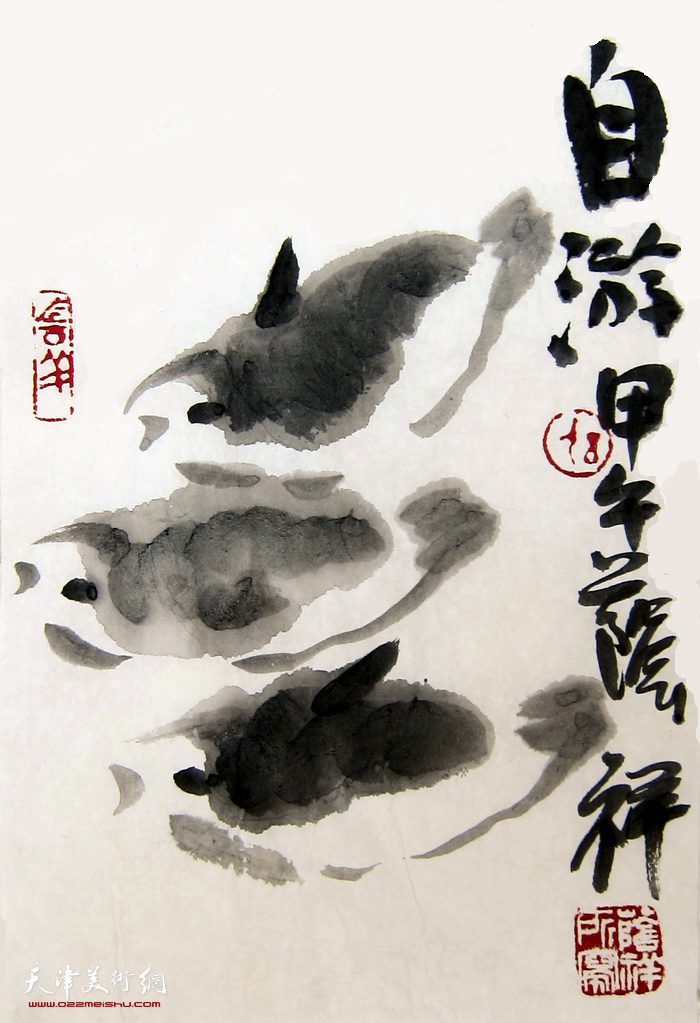 自游甲午蔭祥
蔭祥所寫
天津美術網
www.022meishu.com